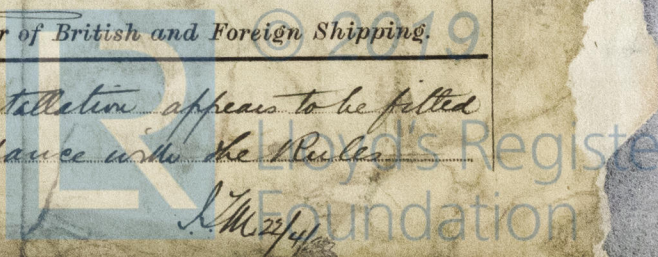 r of British and Foreign Shipping.
© 2019
tallation appears to be fitted
dance with the Rules
Lloyd's Registe
Foundation
LR
22/4/